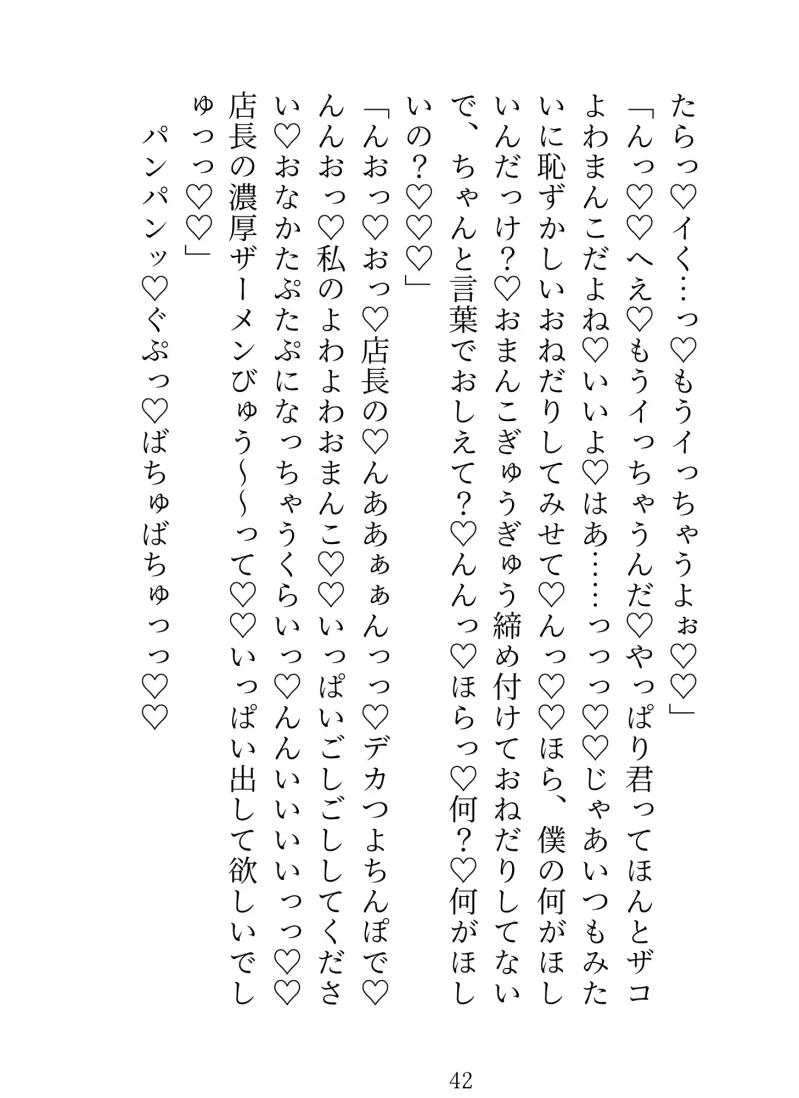 たらっ♡イく…っ♡もうイっちゃうよぉ♡♡」
「んっ♡♡へえ♡もうイっちゃうんだ♡やっぱり君ってほんとザコ
よわまんこだよね♡いいよ♡はあ……っっっ♡♡じゃあいつもみた
いに恥ずかしいおねだりしてみせて♡んっ♡♡ほら、僕の何がほし
いんだっけ？♡おまんこぎゅうぎゅう締め付けておねだりしてない
で、ちゃんと言葉でおしえて？♡んんっ♡ほらっ♡何？♡何がほし
いの？♡♡♡」
「んおっ♡おっ♡店長の♡んああぁぁんっっ♡デカつよちんぽで♡
んんおっ♡私のよわよわおまんこ♡♡いっぱいごしごししてくださ
い♡おなかたぷたぷになっちゃうくらいっ♡んんいいいいっっ♡♡
店長の濃厚ザーメンびゅう～～って♡♡いっぱい出して欲しいでし
ゅっっ♡♡」
パンパンッ♡ぐぷっ♡ばちゅばちゅっっ♡♡
42